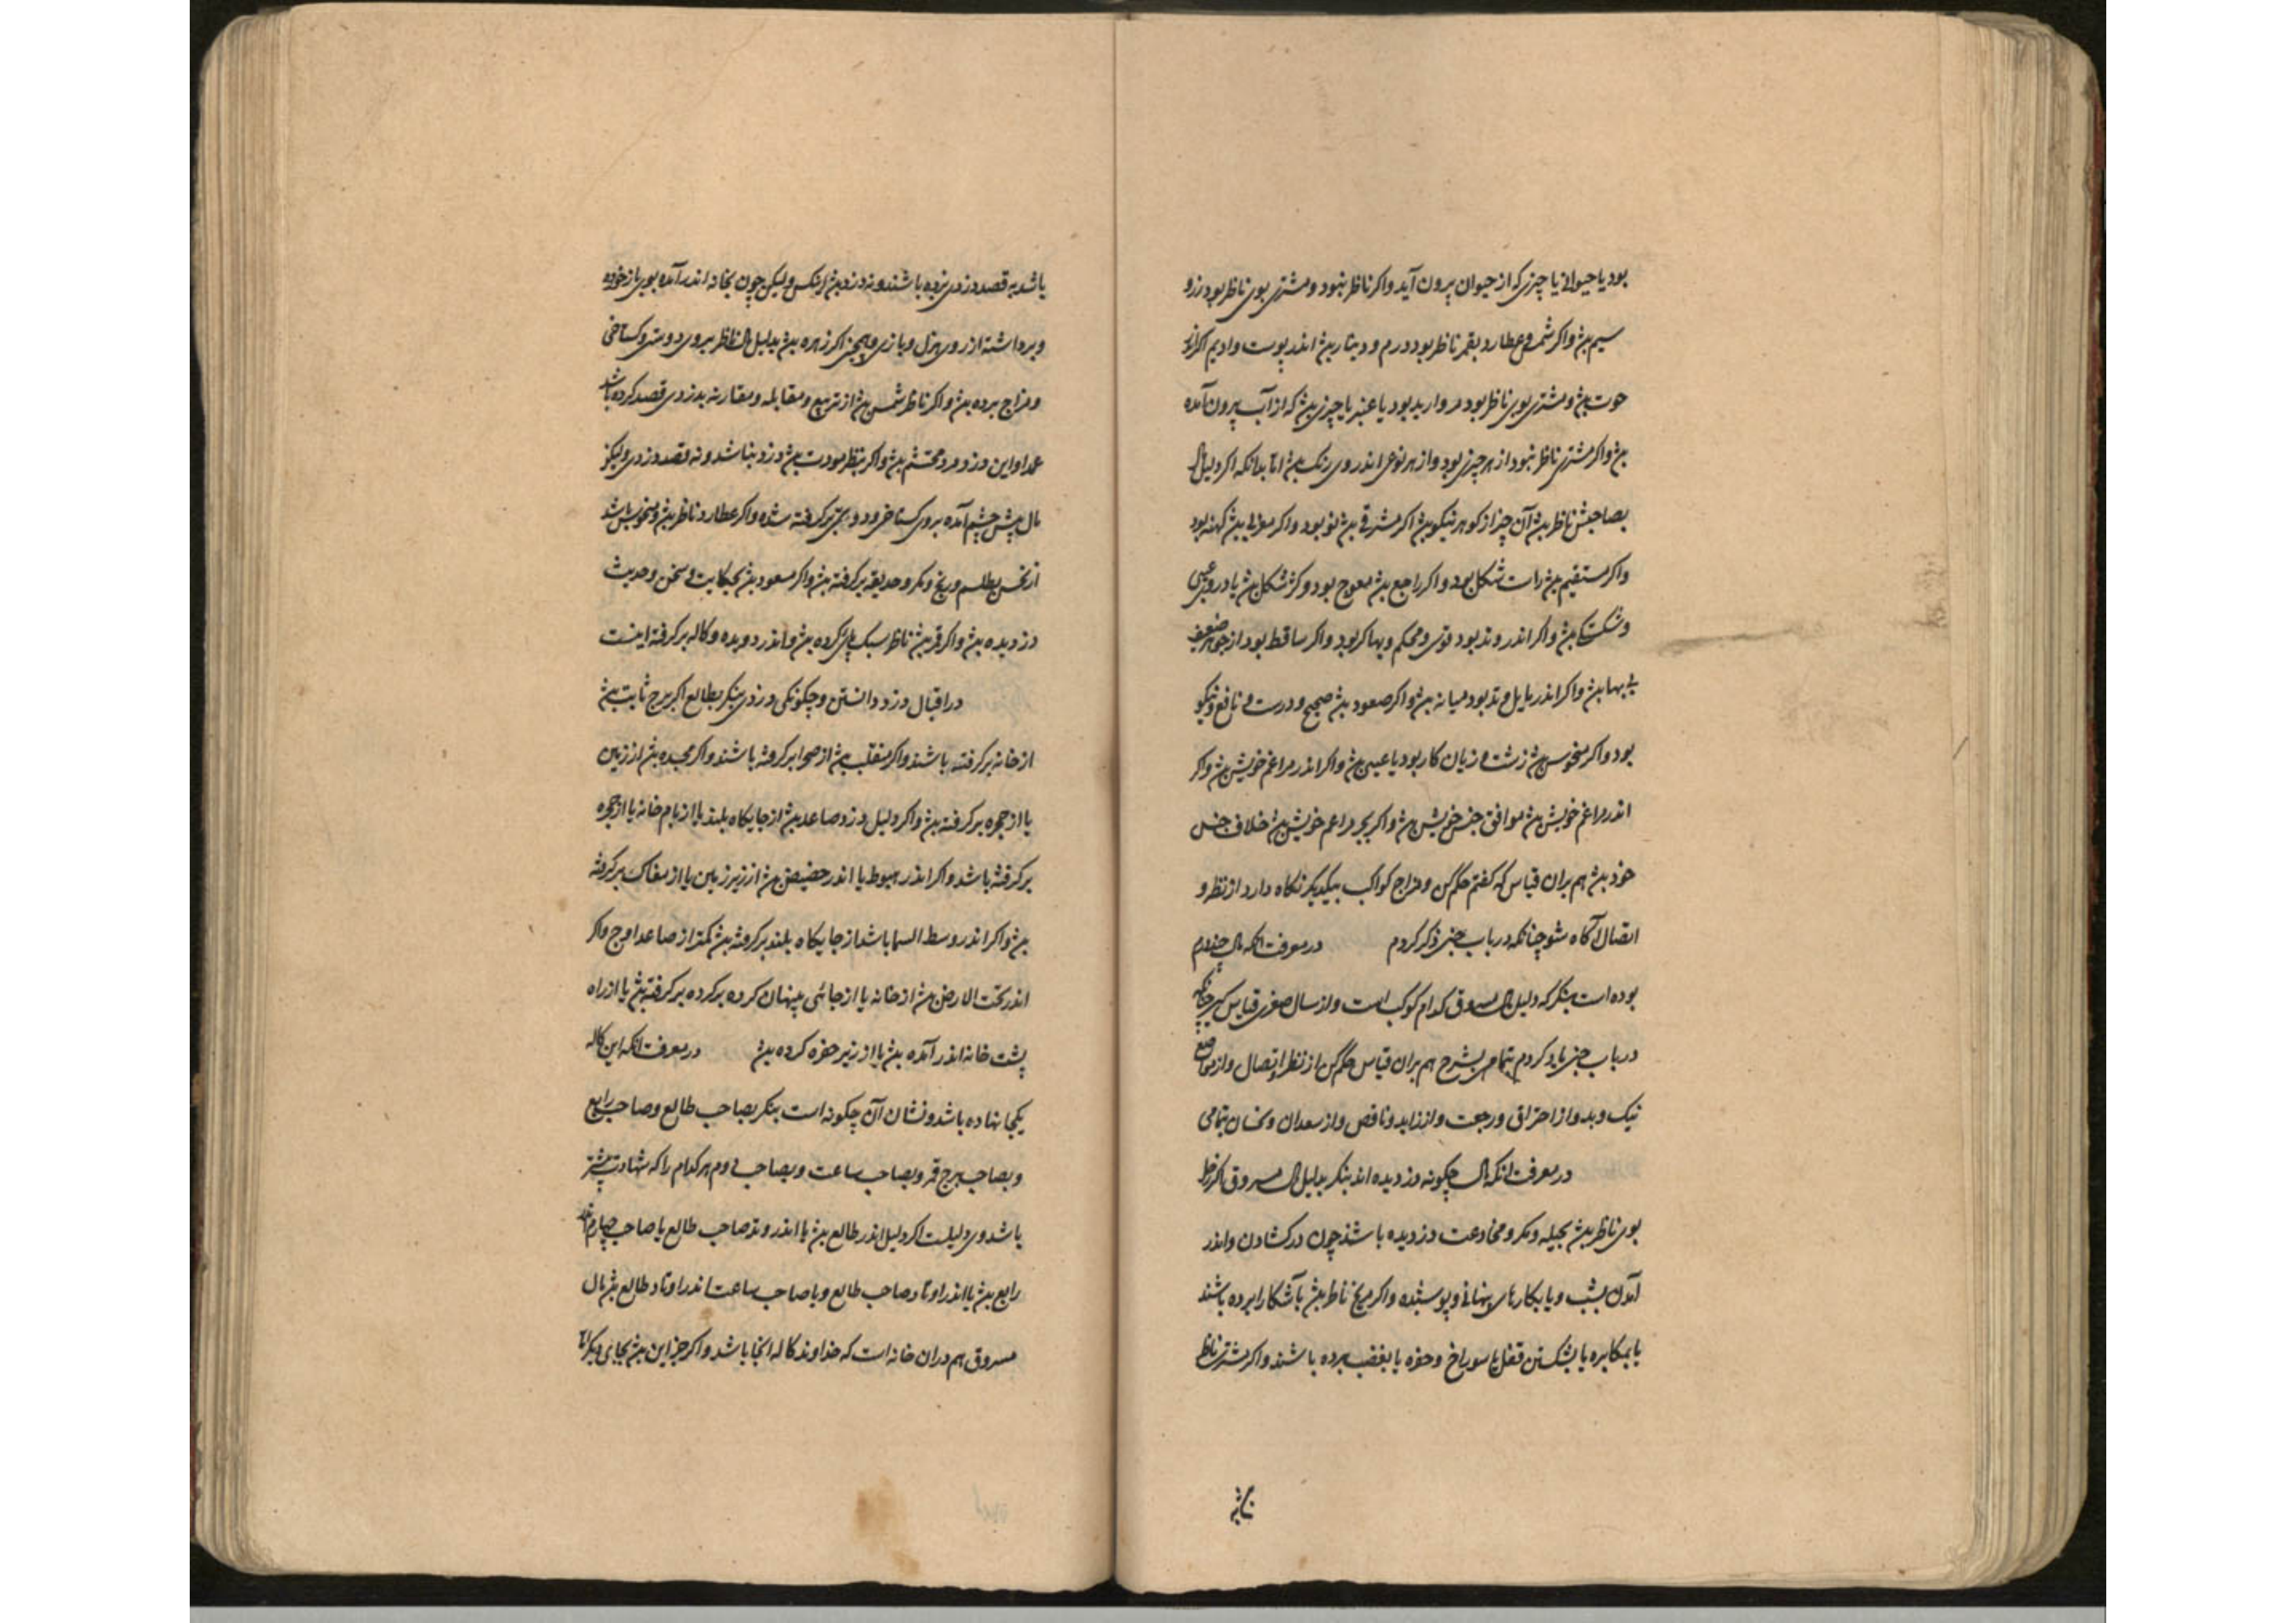 بود یا حیوانی یا چیزی که از حیوان بیرون آید و اگر ناظر نبود و مشتری بوی ناظر بود زر و
سیم بش و اگر شمس و عطارد بقمر ناظر بود درم و دینار بش اندر پوست و ادیم اگر اندر
حوت بش و مشتری بوی ناظر بود مروارید بود یا عنبر یا چیزی بش که از آب بیرون آمده
بش و اگر مشتری ناظر نبود از هر چیزی بود و از هر نوعی اندر وی رنگ بش اما بدانکه اگر دلیل مال
بصاحبش ناظر بش آن چیز از گوهر نیکو بش اگر مشرقی بش نو بود و اگر بش کهنه بود
و اگر مستقیم بش راست شکل بود و اگر راجع بش معوج بود و کژ شکل بش یا در وی عیبی
و شکستگی بش و اگر اندر وتد بود قوی و محکم و بها کر بود و اگر ساقط بود از جوهر ضعیف
بی بها بش و اگر اندر مایل وتد بود میانه بش و اگر صعود بش صحیح و درست و نافع و نیکو
بود و اگر منحوس بش زشت و زیان کار بود یا عیبی بش و اگر اندر مراغم خویش بش و اگر
اندر مراغم خویش بش موافق جنس خویش بش و اگر بجز مراغم خویش بش خلاف جنس
خود بش هم بران قیاس که گفتم حکم کن و مزاج کواکب بیکدیگر نگاه دارد از نظر و
اتصال آگاه شو چنانکه در باب خبی ذکر کردم در معرفت انکه مال چند درم
بوده است بنگر که دلیل مال مسروق کدام کوکب است و از سال صغری قیاس گیر چنانکه
در باب خبی یاد کردم بتمامی بشرح هم بران قیاس حکم کن از نظر و اتصال و از مواضع
نیک و بد و از احتراق و رجعت و از زاید و ناقص و از سعدان و نحسان بتمامی
در معرفت انکه مال چگونه دزدیده اند بنگر بدلیل مال مسروق اگر زحل
بوی ناظر بش بحیله و مکر و مخادعت دزدیده باشند چون در گشادن و اندر
آمدن بشب و یا بکارهای پنهانی و پوشیده و اگر مریخ ناظر بش بآشکارا برده باشند
یا بمکابره یا بشکستن قفل یا سوراخ و حفره یا بغضب برده باشند و اگر مشتری ناظر
باشد به قصد دزدی نبرده باشند و نه دزد بش آنکس ولیکن چون بخانه اندر آمده بوی باز خورده
و برداشته از روی هزل و بازی و همچنین اگر زهره بش بدلیل مال ناظر بروی دوستی و گستاخی
و مزاج برده بش و اگر ناظر شمس بش از تربیع و مقابله و مقارنه بدزدی قصد کرده باشد
عمدا و این دزد مرد محتشم بش و اگر بنظر مودت بش دزد نباشد و نه بقصد دزدی ولیکن
مال پیش چشم آمده بروی گستاخی رود و برگرفته شده و اگر عطارد ناظر بش و منحوس باشد
از نحس بطلسم و مکر و برگرفته بش و اگر مسعود بش بحکایت و سخن و حدیث
دزدیده بش و اگر قمر بش ناظر سبک پایی کرده بش و اندر دویده و کاله برگرفته اینست
در اقبال دزد دانستن و چگونگی دزدی بنگر بطالع اگر برج ثابت بش
از خانه برگرفته باشند و اگر منقلب بش از صحرا برگرفته باشند و اگر مجسده بش از زمین
یا از حجره برگرفته بش و اگر دلیل دزد صاعد بش از جایگاه بلند یا از بام خانه یا از حجره
برگرفته باشد و اگر اندر هبوط یا اندر حضیض بش از زیر زمین یا از مغاک برگرفته
بش و اگر اندر وسط السما باشد از جایگاه بلند برگرفته بش کمتر از صاعد اوج و اگر
اندر تحت الارض بش از خانه یا از جائی پنهان کرده برکرده برگرفته بش یا از راه
پشت خانه اندر آمده بش یا از زیر حفره کرده بش در معرفت انکه این کاله
بکجا نهاده باشد و نشان آن چگونه است بنگر بصاحب طالع و صاحب رابع
و بصاحب برج قمر و بصاحب ساعت و بصاحب دوم هر کدام را که شهادت بیشتر
باشد وی دلیلست اگر دلیل اندر طالع بش یا اندر وتد صاحب طالع یا صاحب چهارم اندر
رابع بش یا اندر اوتاد صاحب طالع و یا صاحب ساعت اندر اوتاد طالع بش مال
مسروق هم دران خانه است که خداوند کاله آنجا باشد و اگر جز این بش بجای دیگر